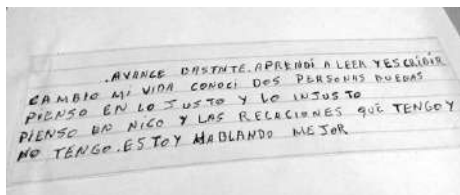 .AVANCE BASTNTE.APRENDI A LEER Y ESCRIBIR
CAMBIO MI VIDA CONOCI DOS PERSONAS BUEGAS
PIENSO EN LO JUSTO Y LO INJUSTO
PIENSO EN NICO Y LAS RELACIONES QUE TENGO Y
NO TENGO.ESTOY HABLANDO MEJOR